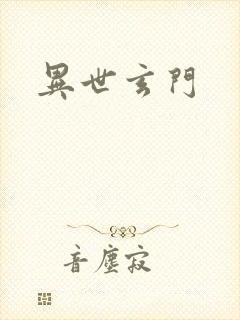 異世玄門
音塵寂